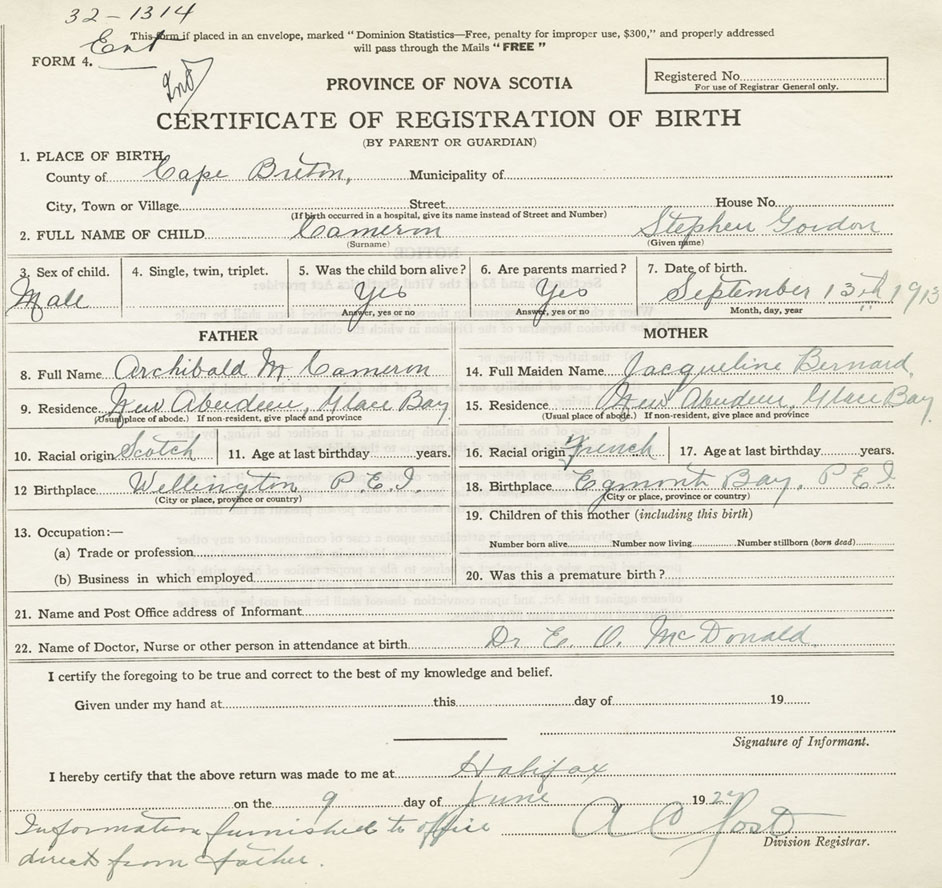 32-1314
This form if placed in an envelope, marked " Dominion Statistics—Free, penalty for improper use, $300," and properly addressed
Ent
will pass through the Mails " FREE "
FORM 4.
PROVINCE OF NOVA SCOTIA
Registered No.
For use of Registrar General only.
CERTIFICATE OF REGISTRATION OF BIRTH
(BY PARENT OR GUARDIAN)
1. PLACE OF BIRTH
County of Cape Breton, Municipality of
City, Town or Village Street House No.
(If birth occurred in a hospital, give its name instead of Street and Number)
2. FULL NAME OF CHILD Cameron Stephen Gordon
(Surname) (Given name)
3. Sex of child. 4. Single, twin, triplet. 5. Was the child born alive? 6. Are parents married? 7. Date of birth.
Male Yes Yes September 13th 1913
Answer, yes or no Answer, yes or no Month, day, year
FATHER MOTHER
8. Full Name Archibald M Cameron 14. Full Maiden Name Jacqueline Bernard,
9. Residence New Aberdeen, Glace Bay 15. Residence New Aberdeen, Glace Bay
(Usual place of abode.) If non-resident, give place and province (Usual place of abode.) If non-resident, give place and province
10. Racial origin Scotch 11. Age at last birthday years. 16. Racial origin French 17. Age at last birthday years.
12 Birthplace Wellington P.E.I. 18. Birthplace Egmont Bay, P.E.I.
(City or place, province or country) (City or place, province or country)
19. Children of this mother (including this birth)
13. Occupation:—
(a) Trade or profession Number born alive Number now living Number stillborn (born dead)
(b) Business in which employed 20. Was this a premature birth?
21. Name and Post Office address of Informant
22. Name of Doctor, Nurse or other person in attendance at birth Dr E. O. McDonald
I certify the foregoing to be true and correct to the best of my knowledge and belief.
Given under my hand at this day of 19
Signature of Informant.
I hereby certify that the above return was made to me at Halifax
on the 9 day of June 19
Information furnished to office
direct from father.
Division Registrar.